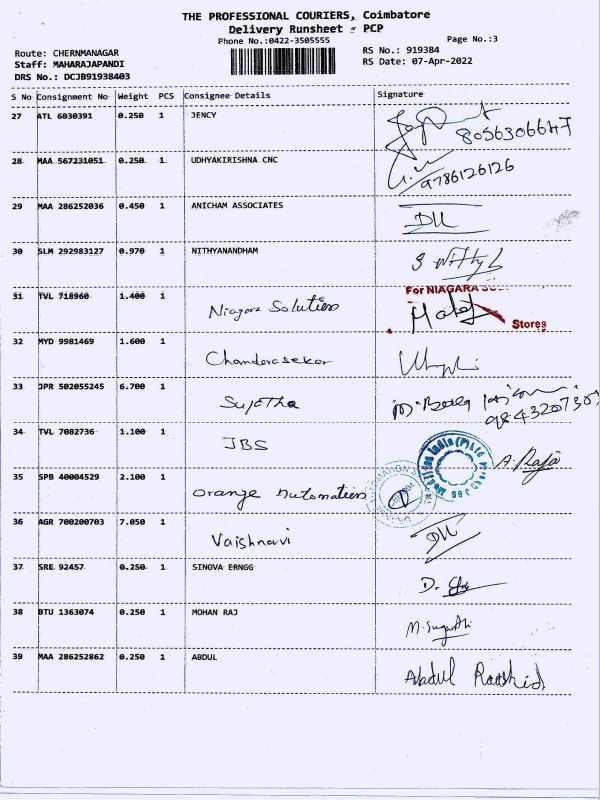 THE PROFESSIONAL COURIERS, Coimbatore
Delivery Runsheet - PCP
Phone No.:0422-3505555 Page No.:3
Route: CHERNMANAGAR RS No.: 919384
Staff: MAHARAJAPANDI RS Date: 07-Apr-2022
DRS No.: DCJB91938403
S No Consignment No Weight PCS Consignee Details Signature
27 ATL 6030391 0.250 1 JENCY
8056306647
28 MAA 567231051 0.250 1 UDHYAKIRISHNA CNC
9786126126
29 MAA 286252036 0.450 1 ANICHAM ASSOCIATES
30 SLM 292983127 0.970 1 NITHYANANDHAM
31 TVL 718960 1.400 1 Niagara Solutions
For NIAGARA
Stores
32 MYD 9981469 1.600 1 Chandarasekar
33 JPR 502055245 6.700 1 Sujatha
34 TVL 7082736 1.100 1 JBS A. Raja
35 SPB 40004529 2.100 1 Orange Automation
36 AGR 700200703 7.050 1 Vaishnavi
37 SRE 92457 0.250 1 SINOVA ERNGG
38 BTU 1363074 0.250 1 MOHAN RAJ
39 MAA 286252862 0.250 1 ABDUL Abdul Raashid